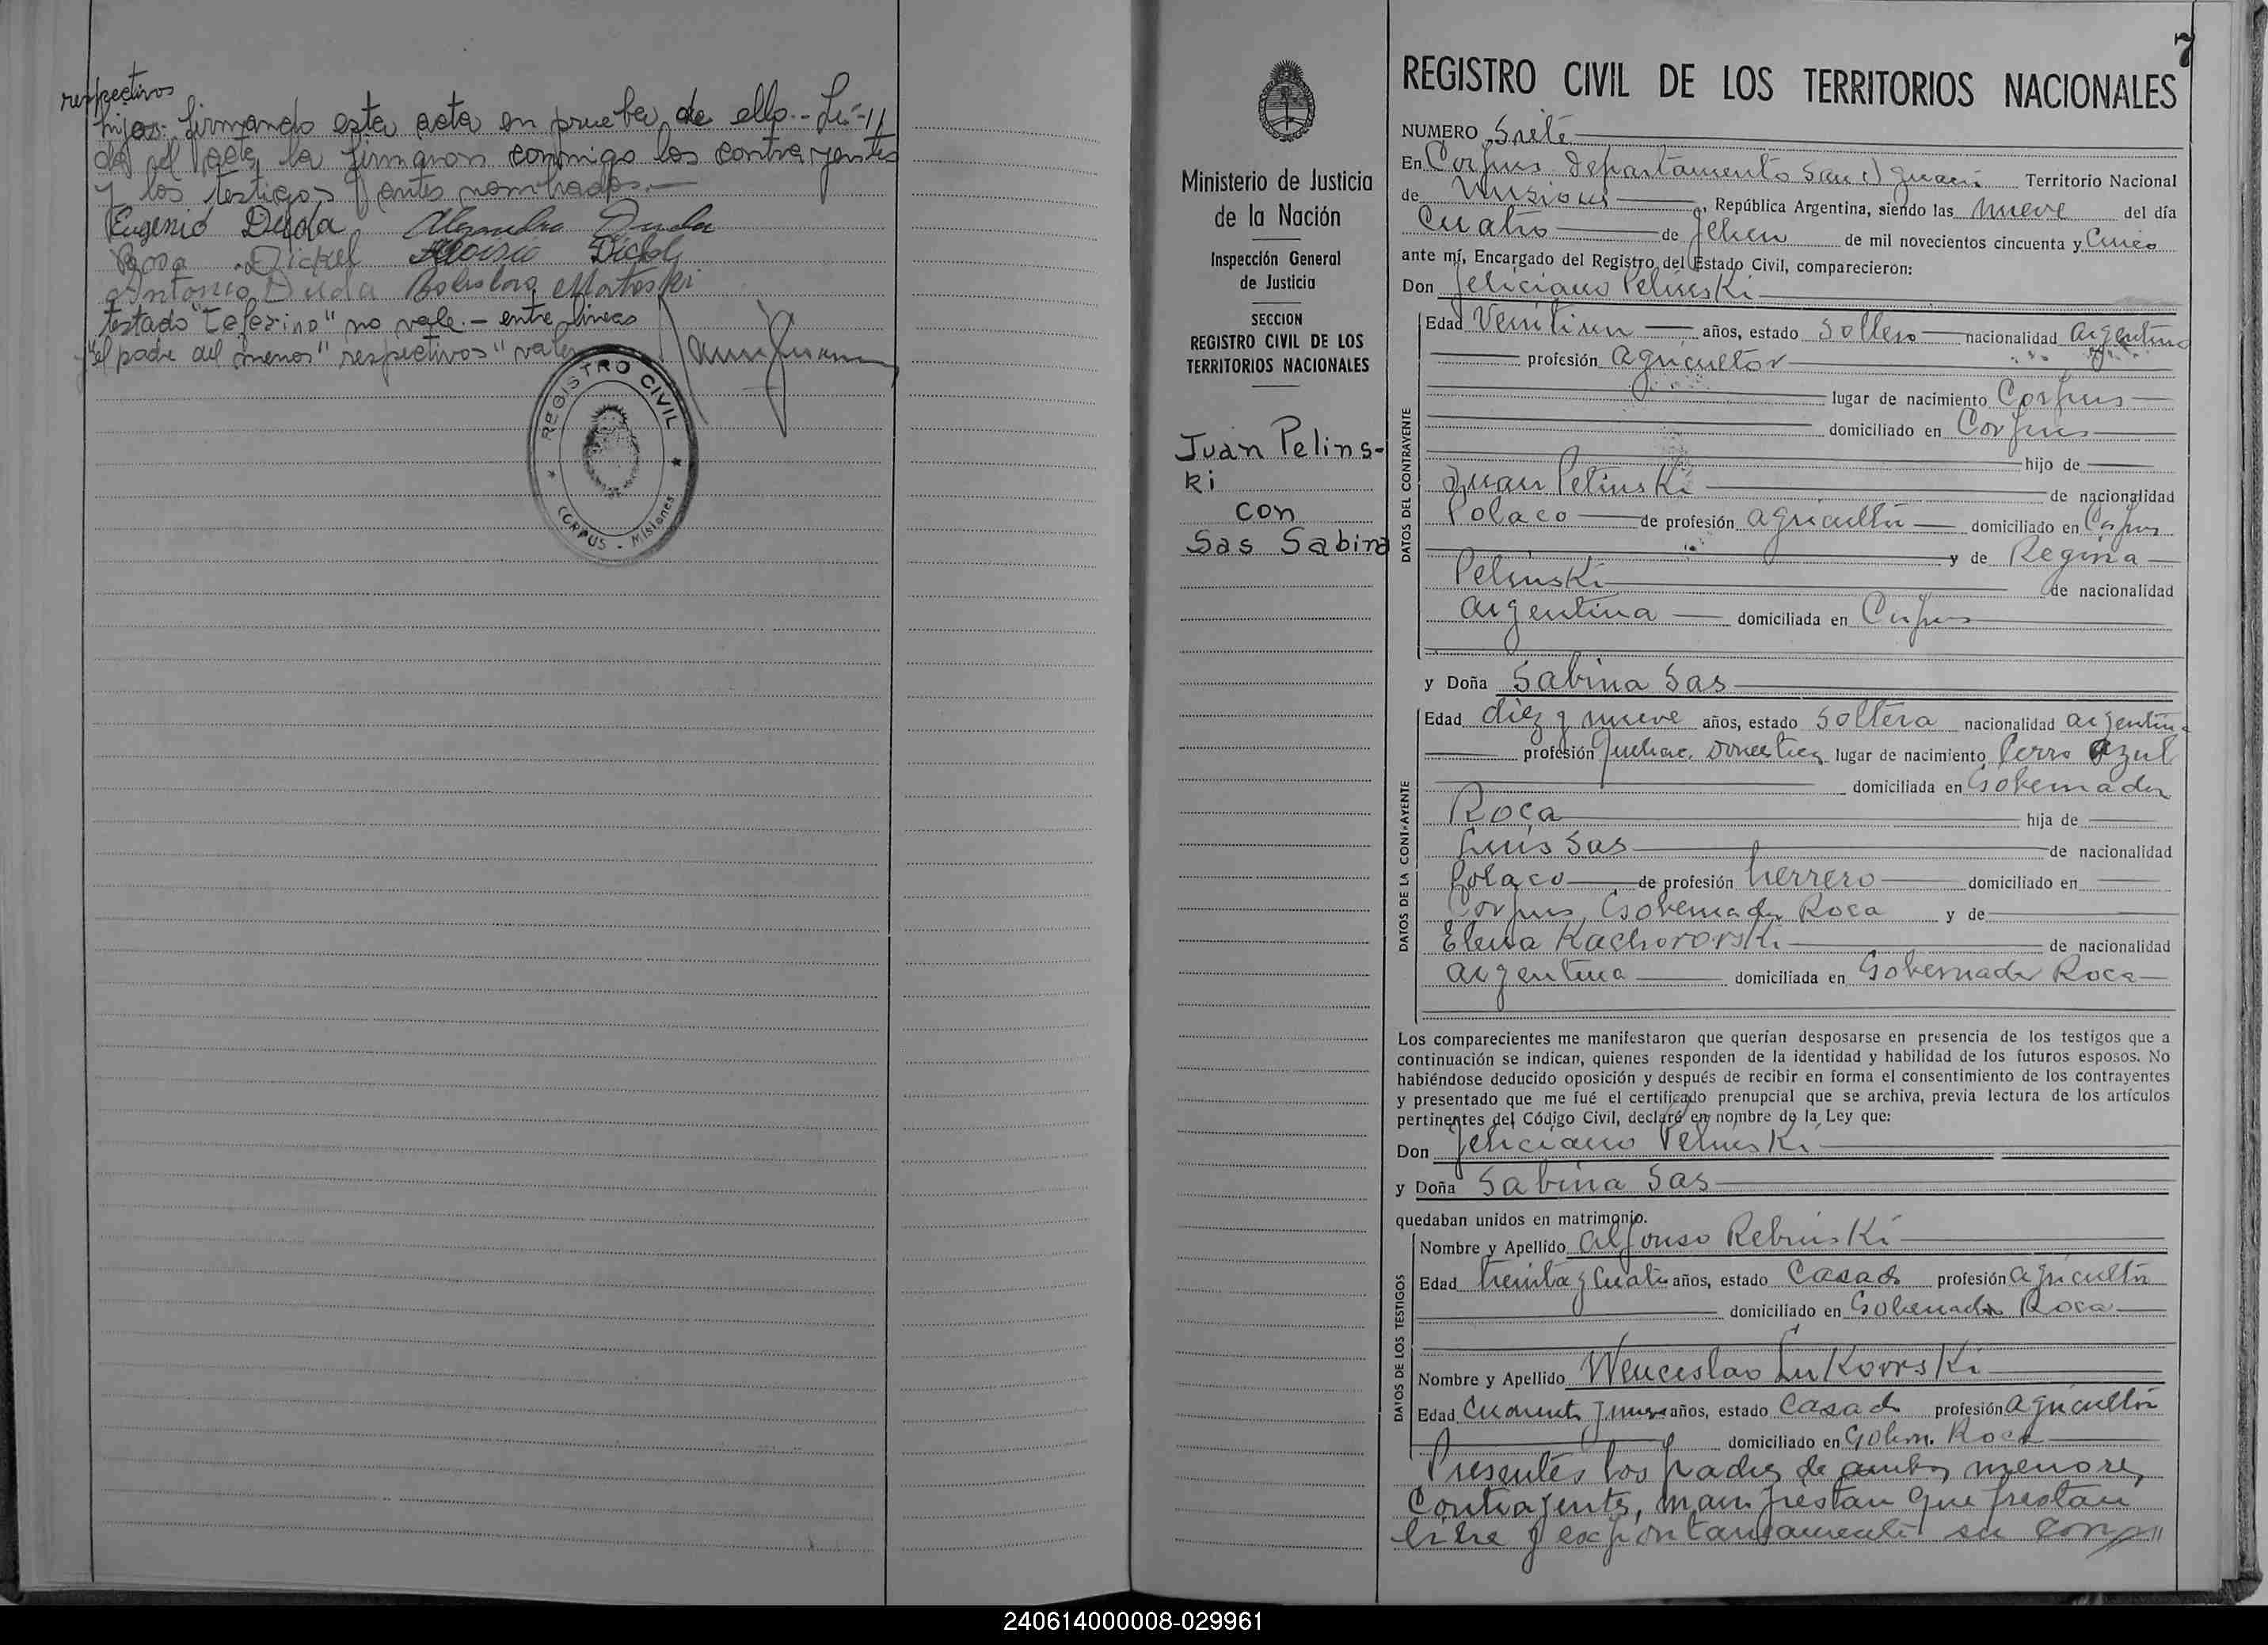 respectivos
hijos: firmando esta acta en prueba de ello.- Leí-//
da el acta, la firmaron conmigo los contrayentes
y los testigos antes nombrados.—
Eugenio Duda Alejandro Duda
Rosa Dickel
Antonio Duda
testado "Ceferino" no vale.- entre lineas
"el padre del menor" "respectivos" vale
REGISTRO CIVIL
CORPUS - Misiones
7
Ministerio de Justicia
de la Nación
Inspección General
de Justicia
SECCION
REGISTRO CIVIL DE LOS
TERRITORIOS NACIONALES
Juan Pelins-
ki
con
Sas Sabina
REGISTRO CIVIL DE LOS TERRITORIOS NACIONALES
NUMERO Siete
En Corpus Departamento San Ignacio Territorio Nacional
de Misiones, República Argentina, siendo las nueve del día
Cuatro de Febrero de mil novecientos cincuenta y Cinco
ante mí, Encargado del Registro del Estado Civil, comparecieron:
Don Feliciano Pelinski
DATOS DEL CONTRAYENTE
Edad Veintiun años, estado Soltero nacionalidad argentino
profesión agricultor
lugar de nacimiento Corpus
domiciliado en Corpus
hijo de
Juan Pelinski de nacionalidad
Polaco de profesión agricultor domiciliado en Corpus
y de Regina
Pelinski de nacionalidad
argentina domiciliada en Corpus
y Doña Sabina Sas
DATOS DE LA CONTRAYENTE
Edad diez y nueve años, estado Soltera nacionalidad argentina
profesión quehac. domestico lugar de nacimiento Cerro Azul
domiciliada en Gobernador
Roca hija de
Luis Sas de nacionalidad
Polaco de profesión herrero domiciliado en
Corpus, Gobernador Roca y de
Elena Kachorovski de nacionalidad
argentina domiciliada en Gobernador Roca
Los comparecientes me manifestaron que querían desposarse en presencia de los testigos que a
continuación se indican, quienes responden de la identidad y habilidad de los futuros esposos. No
habiéndose deducido oposición y después de recibir en forma el consentimiento de los contrayentes
y presentado que me fué el certificado prenupcial que se archiva, previa lectura de los artículos
pertinentes del Código Civil, declaré en nombre de la Ley que:
Don Feliciano Pelinski
y Doña Sabina Sas
quedaban unidos en matrimonio.
DATOS DE LOS TESTIGOS
Nombre y Apellido Alfonso Rebinski
Edad treinta y cuatro años, estado Casado profesión agricultor
domiciliado en Gobernador Roca
Nombre y Apellido Wenceslao Lukowski
Edad Cuarenta y nueve años, estado Casado profesión agricultor
domiciliado en Gobern. Roca
Presentes los padres de ambos menores
Contrayentes, manifiestan que prestan
libre y expontaneamente su con//
240614000008-029961